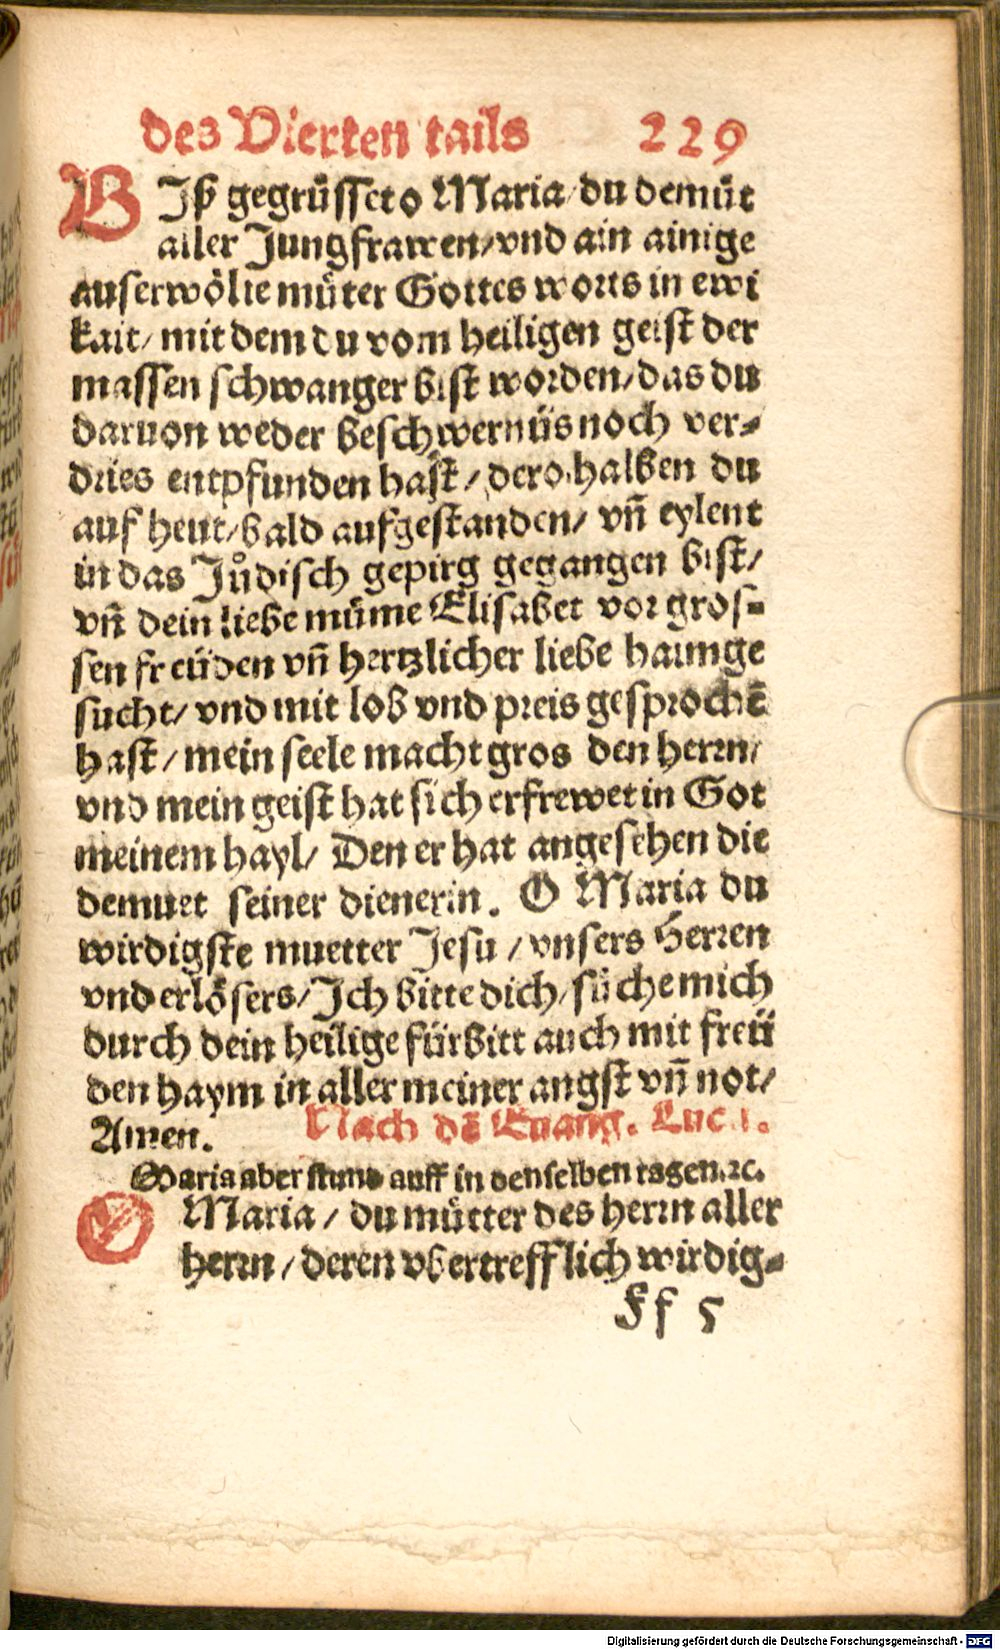 des Vierten tails 229
BIß gegrüsset o Maria / du demüt
aller Jungfrawen / vnd ain ainige
auserwölte müter Gottes worts in ewi
kait / mit dem du vom heiligen geist der
massen schwanger bist worden / das du
daruon weder beschwernüs noch ver-
dries entpfunden hast / dero halben du
auf heut / bald aufgestanden / vñ eylent
in das Jůdisch gepirg gegangen bist /
vñ dein liebe müme Elisabet vor gros-
sen freüden vñ hertzlicher liebe haimge
sucht / vnd mit lob vnd preis gesprochē
hast / mein seele macht gros den herrn /
vnd mein geist hat sich erfrewet in Got
meinem hayl / Den er hat angesehen die
demuet seiner dienerin. O Maria du
wirdigste muetter Jesu / vnsers Herren
vnd erlösers / Ich bitte dich / süche mich
durch dein heilige fürbitt auch mit freü
den haym in aller meiner angst vñ not /
Amen. Nach dē Euang. Luc. 1.
Maria aber stund auff in denselben tagen. ꝛc.
O Maria / du mütter des herrn aller
herrn / deren vbertrefflich wirdig-
Ff 5
Digitalisierung gefördert durch die Deutsche Forschungsgemeinschaft - DFG